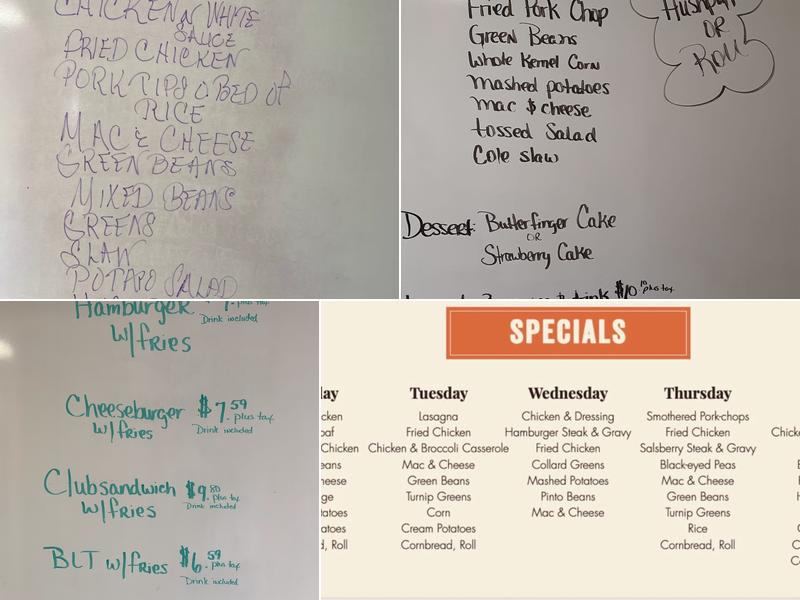 CHICKEN N WHITE
SAUCE
FRIED CHICKEN
PORK TIPS O BED OF
RICE
MAC & CHEESE
GREEN BEANS
MIXED BEANS
GREENS
SLAW
POTATO SALAD
Fried Pork Chop
Green Beans
Whole Kernel Corn
Mashed potatoes
mac $ cheese
tossed Salad
Cole slaw
Hushpup
OR
Roll
Dessert: Butterfinger Cake
OR
Strawberry Cake
drink $10.10 plus tax
Hamburger plus tax
Drink included
w/fries
Cheeseburger $7.59 plus tax
w/fries Drink included
Clubsandwich $9.80 plus tax
w/fries Drink included
BLT w/fries $6.59 plus tax
Drink included
SPECIALS
Tuesday
Lasagna
Fried Chicken
Chicken & Broccoli Casserole
Mac & Cheese
Green Beans
Turnip Greens
Corn
Cream Potatoes
Cornbread, Roll
Wednesday
Chicken & Dressing
Hamburger Steak & Gravy
Fried Chicken
Collard Greens
Mashed Potatoes
Pinto Beans
Mac & Cheese
Thursday
Smothered Pork-chops
Fried Chicken
Salsberry Steak & Gravy
Black-eyed Peas
Mac & Cheese
Green Beans
Turnip Greens
Rice
Cornbread, Roll